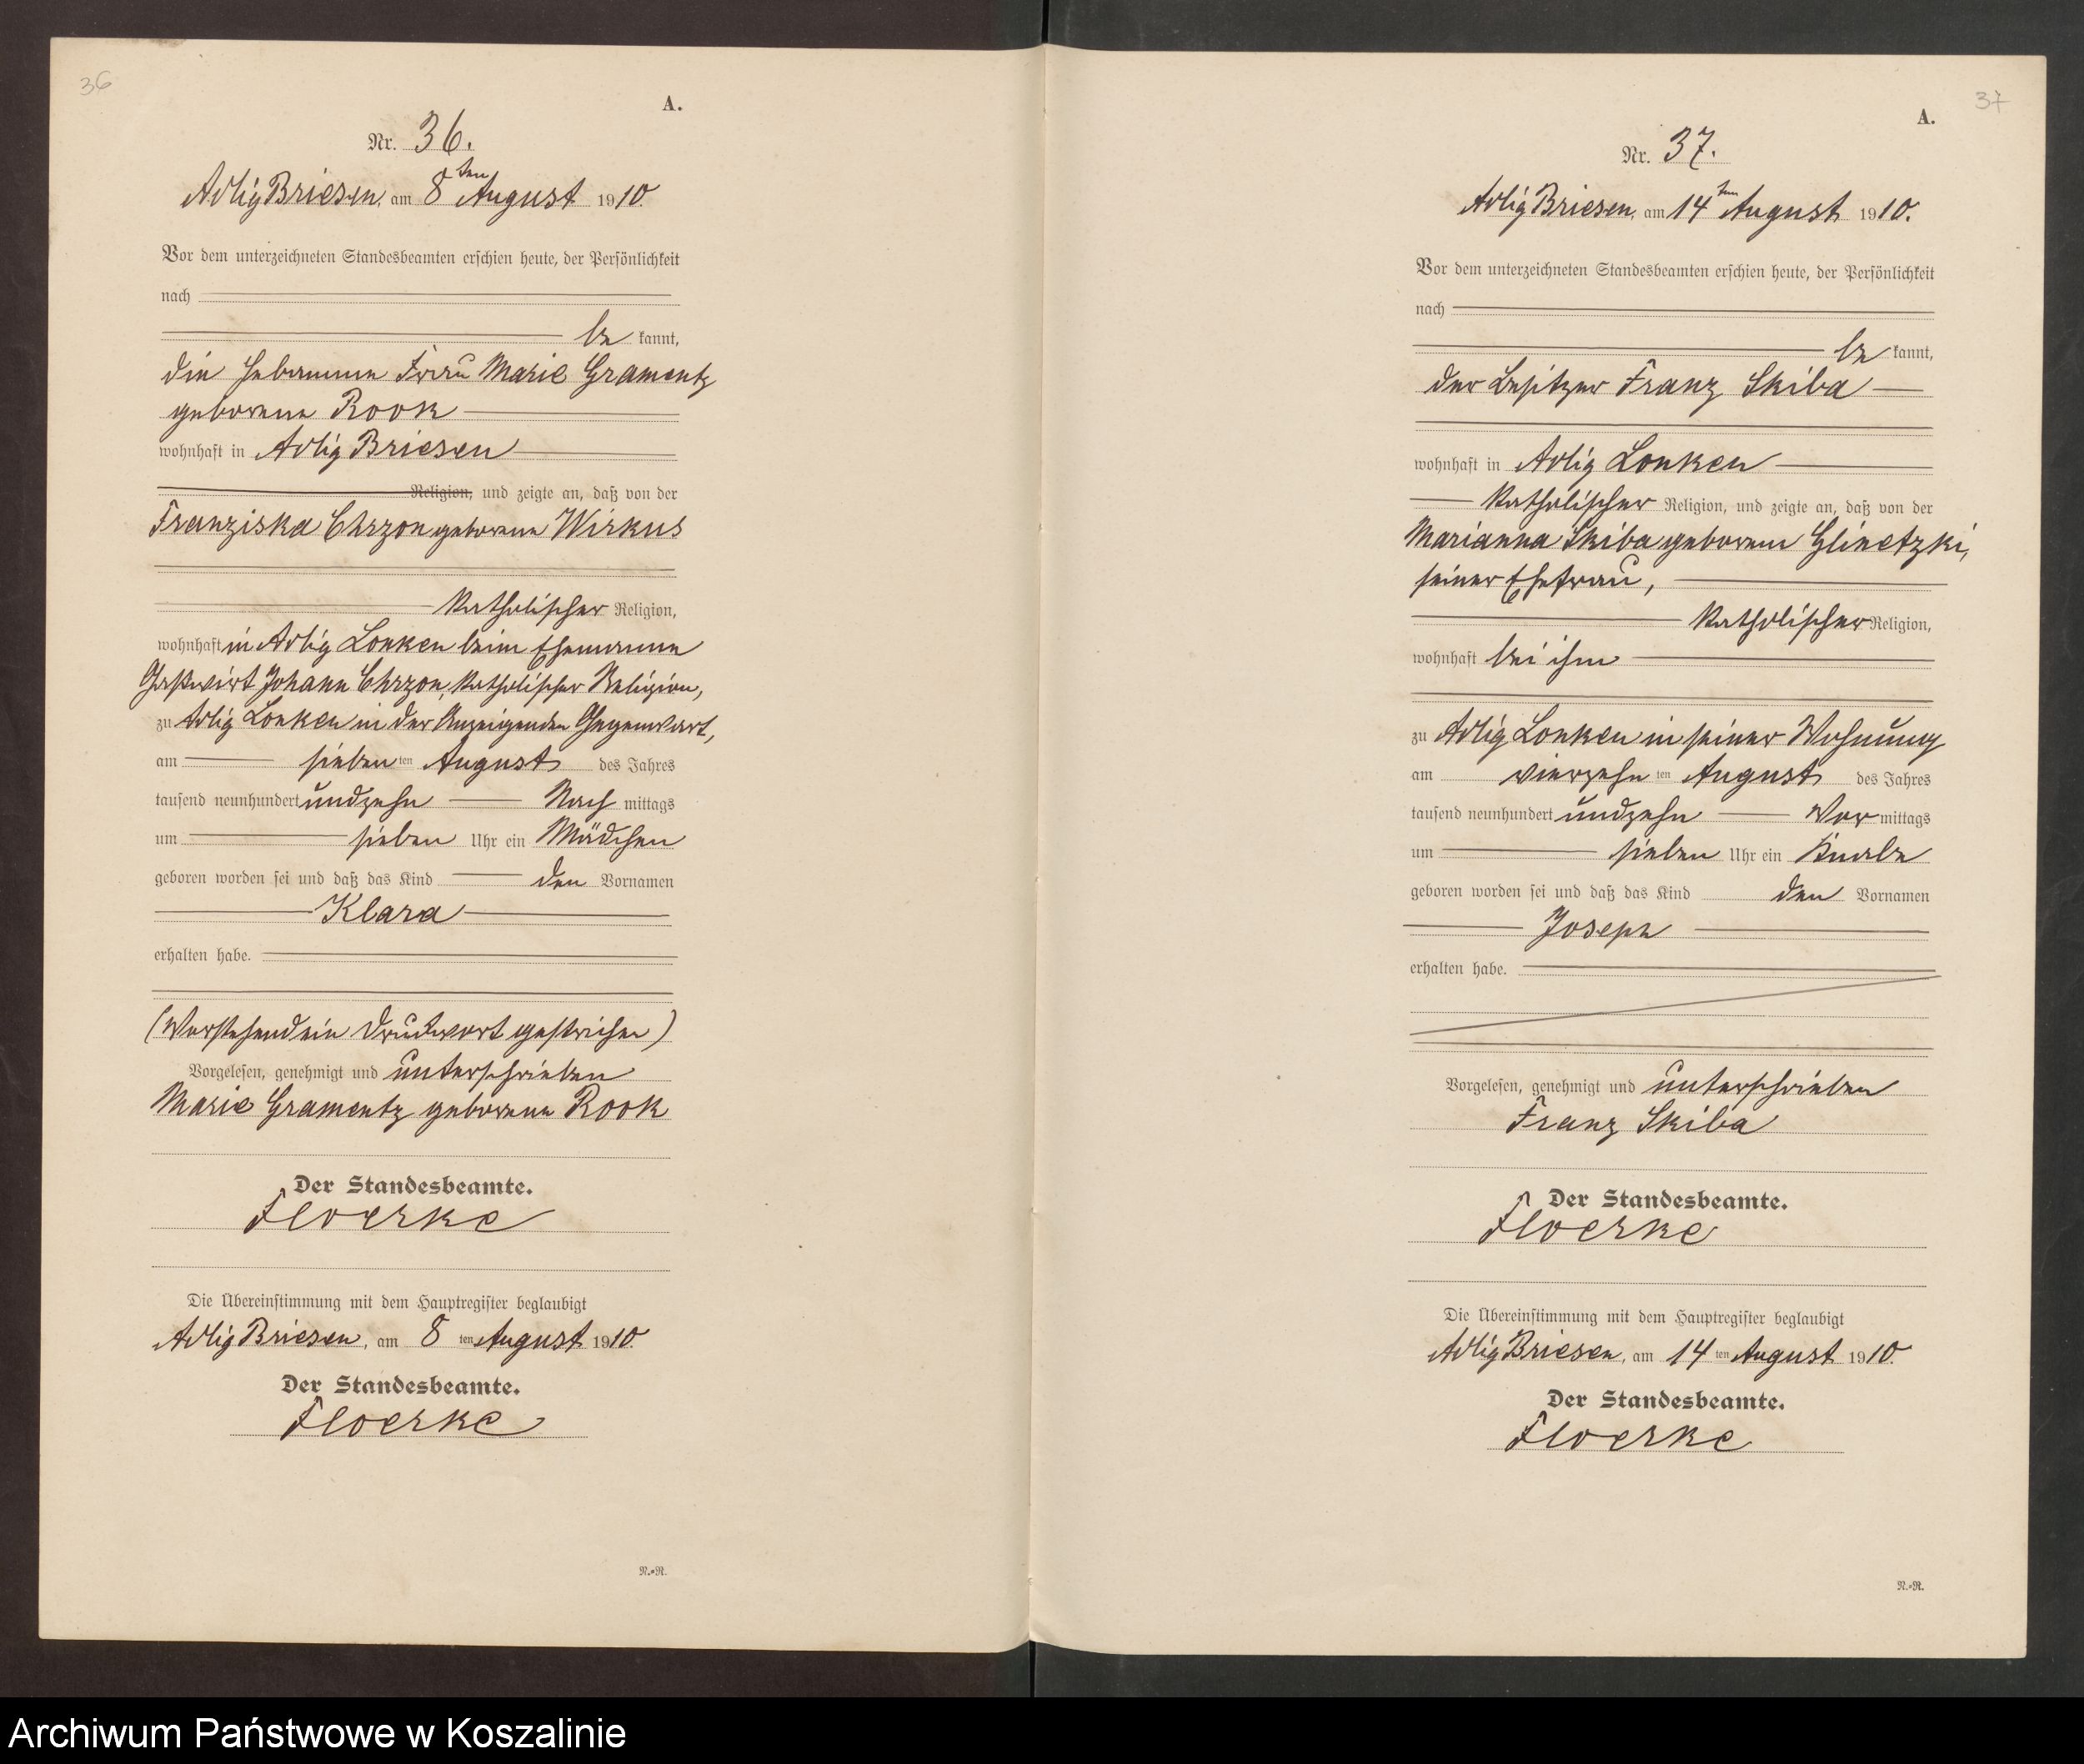 36
A.
Nr. 36.
Adlig Briesen, am 8ten August 1910.
Vor dem unterzeichneten Standesbeamten erschien heute, der Persönlichkeit
nach
be kannt,
die Hebamme Frau Marie Gramentz
geborene Rook
wohnhaft in Adlig Briesen
Religion, und zeigte an, daß von der
Franziska Chrzon geborene Wirkus
katholischer Religion,
wohnhaft in Adlig Lonken beim Ehemanne
Gastwirt Johann Chrzon, katholischer Religion,
zu Adlig Lonken in der Anzeigenden Gegenwart,
am sieben ten August des Jahres
tausend neunhundert undzehn Nach mittags
um sieben Uhr ein Mädchen
geboren worden sei und daß das Kind den Vornamen
Klara
erhalten habe.
(Vorstehend ein Druckwort gestrichen)
Vorgelesen, genehmigt und unterschrieben
Marie Gramentz geborene Rook
Der Standesbeamte.
Floerke
Die Übereinstimmung mit dem Hauptregister beglaubigt
Adlig Briesen, am 8 ten August 1910.
Der Standesbeamte.
Floerke
N.=R.
37
A.
Nr. 37.
Adlig Briesen, am 14ten August 1910.
Vor dem unterzeichneten Standesbeamten erschien heute, der Persönlichkeit
nach
be kannt,
der Besitzer Franz Skiba
wohnhaft in Adlig Lonken
katholischer Religion, und zeigte an, daß von der
Marianna Skiba geborenen Glinetzki,
seiner Ehefrau,
katholischer Religion,
wohnhaft bei ihm
zu Adlig Lonken in seiner Wohnung
am vierzehn ten August des Jahres
tausend neunhundert undzehn Vor mittags
um sieben Uhr ein Knabe
geboren worden sei und daß das Kind den Vornamen
Joseph
erhalten habe.
Vorgelesen, genehmigt und unterschrieben
Franz Skiba
Der Standesbeamte.
Floerke
Die Übereinstimmung mit dem Hauptregister beglaubigt
Adlig Briesen, am 14 ten August 1910.
Der Standesbeamte.
Floerke
N.=R.
Archiwum Państwowe w Koszalinie